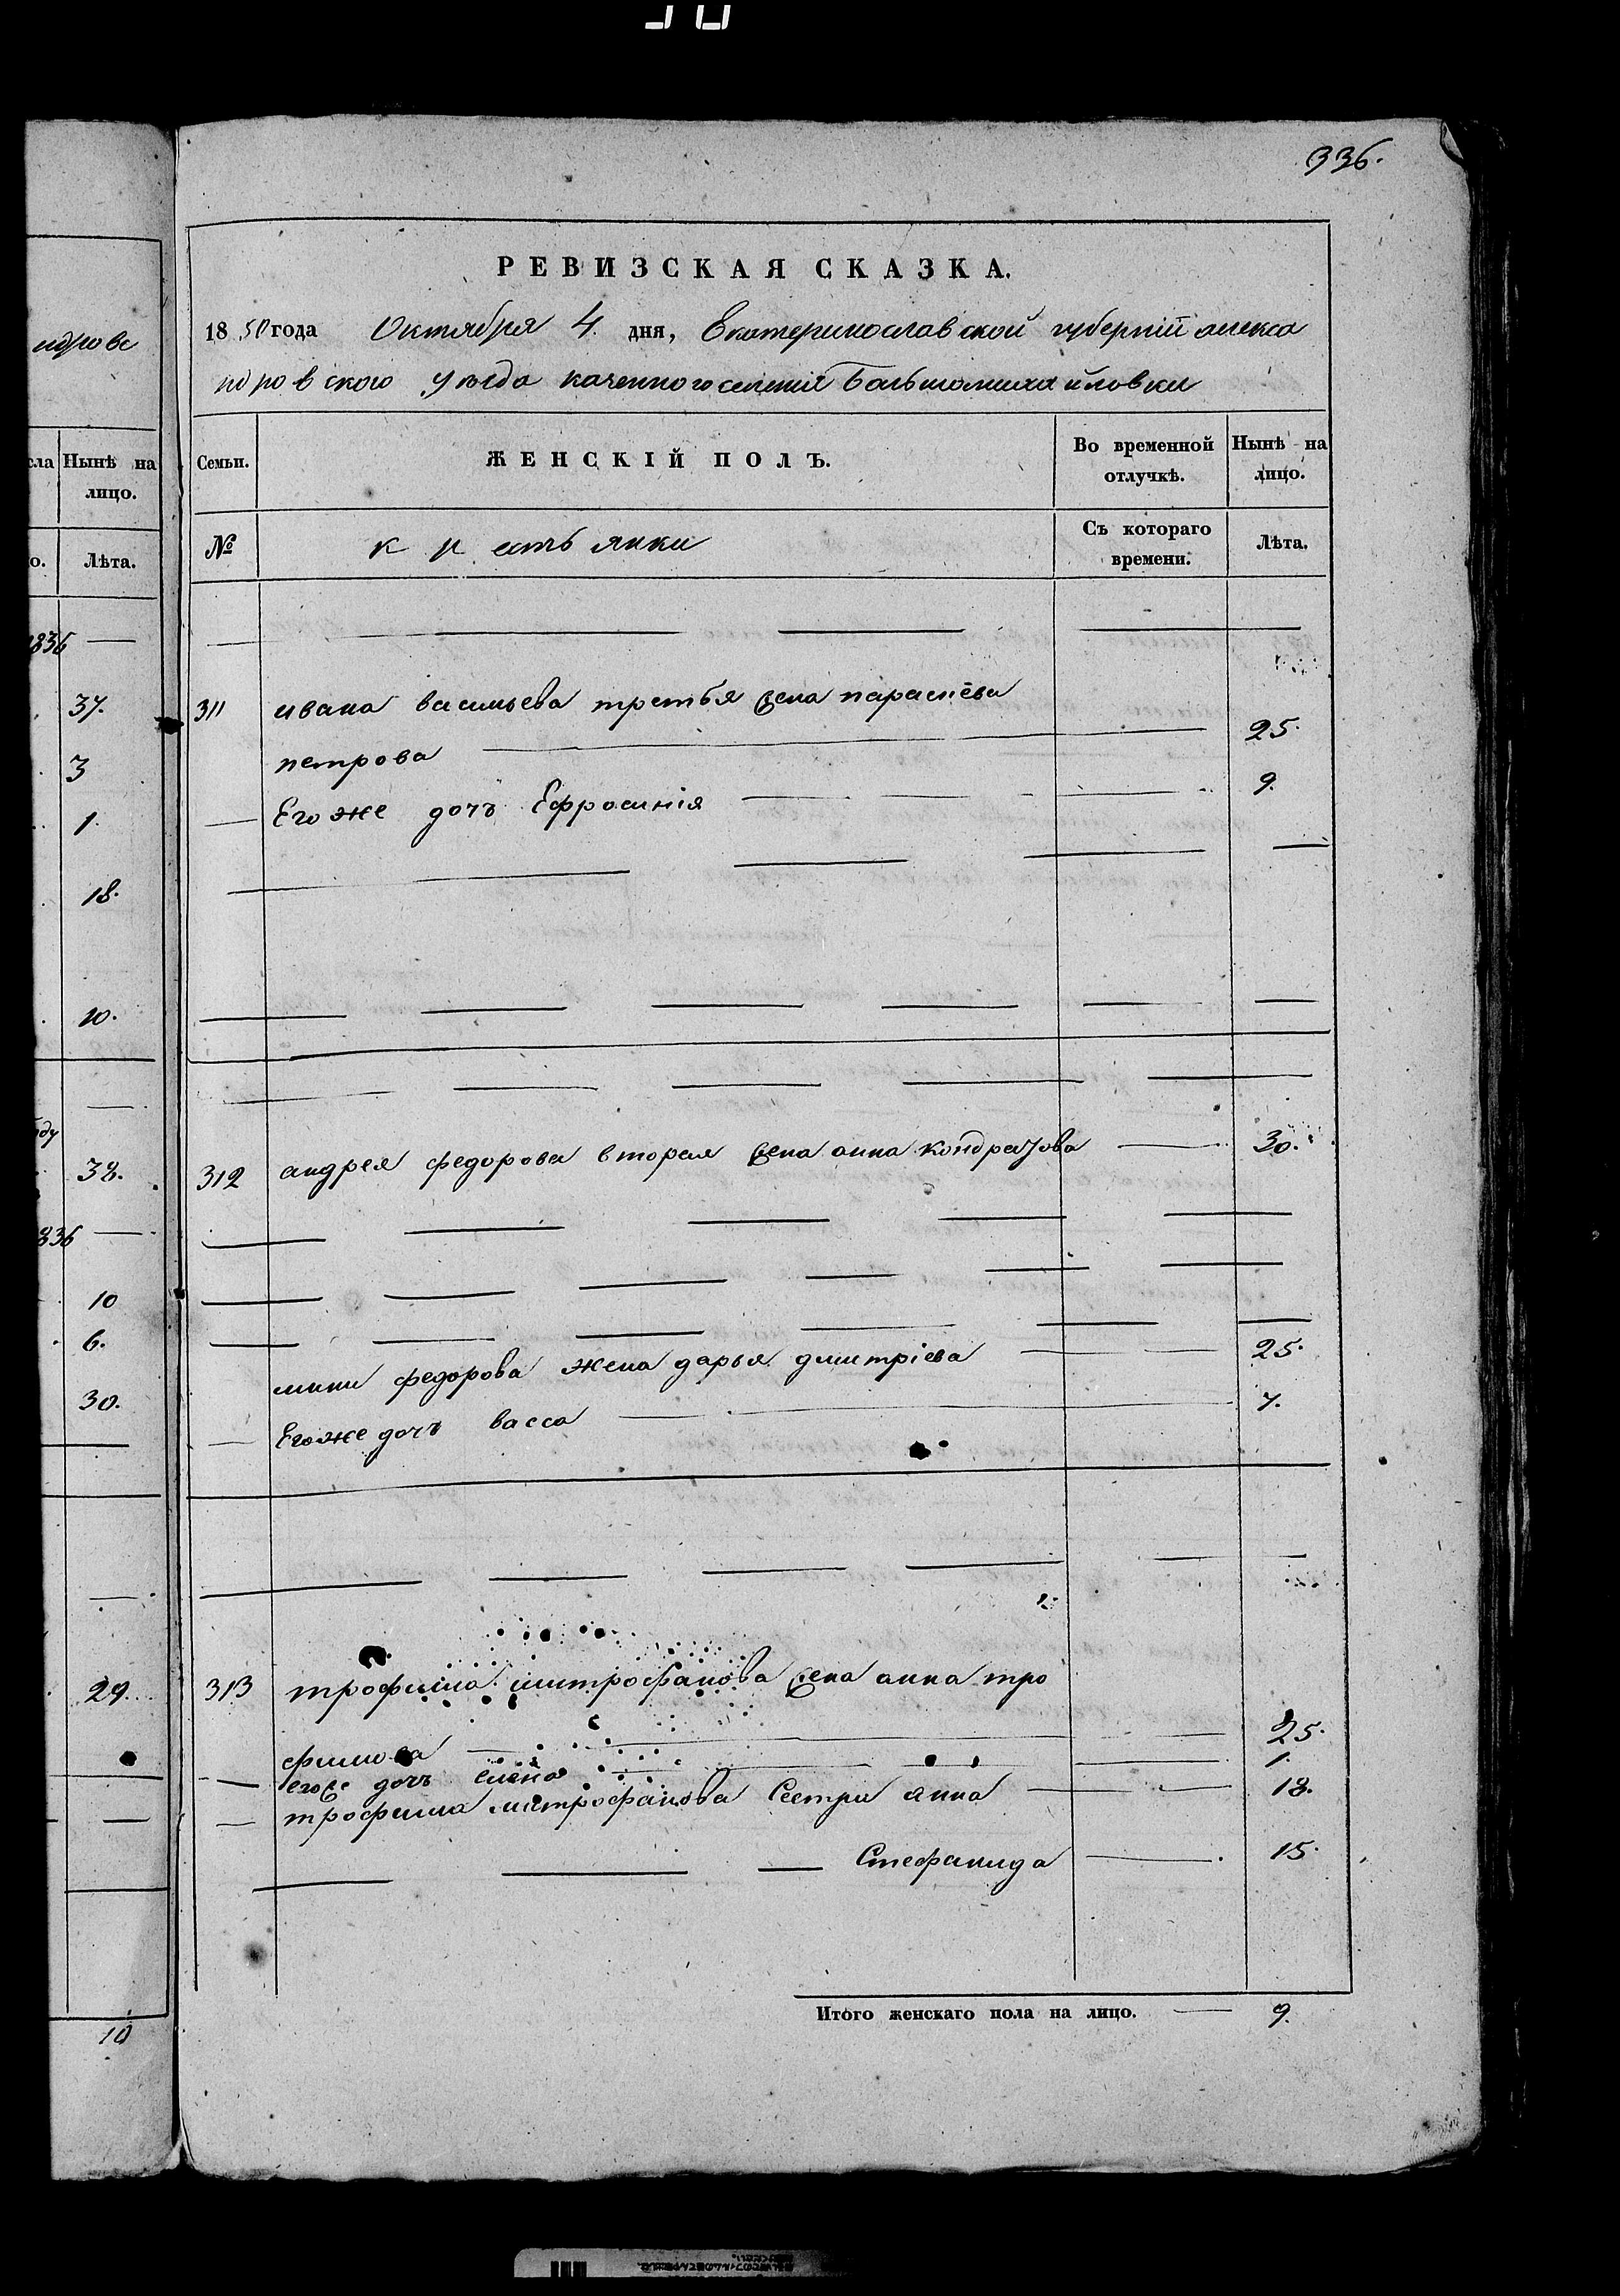 336.
РЕВИЗСКАЯ СКАЗКА.
1850 года Октября 4. дня, Екатеринославской губерній алекса
ндровского уѣзда казенного селенія Большомихайловки
Семьи. ЖЕНСКІЙ ПОЛЪ. Во временной отлучкѣ. Нынѣ на лицо.
№ крестьянки Съ котораго времени. Лѣта.
311 ивана васильева третья жена параскева
петрова 25.
Его же дочь Ефросинія 9.
312 андрея федорова вторая жена анна кондратова 30.
мини федорова жена дарья дмитріева 25.
Его же дочь васса 7.
313 трофима митрофанова жена анна тро
фимова 25.
егоже дочь елена 1.
трофима митрофанова Сестры анна 18.
Стефанида 15.
Итого женскаго пола на лицо. 9.
ндровс
Нынѣ на
лицо.
Лѣта.
1836
37.
3
1.
18.
10.
38.
836
10
6.
30.
29.
10